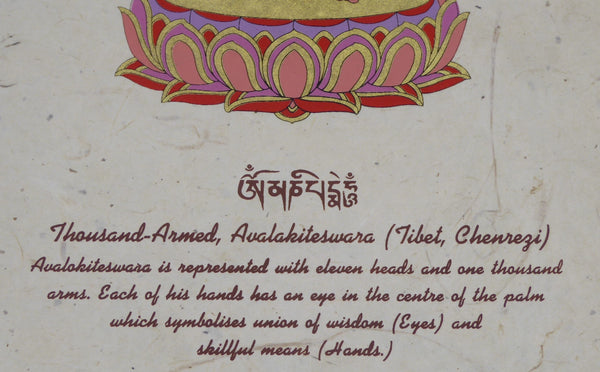 ཨོཾ་མ་ཎི་པདྨེ་ཧཱུྃ
Thousand-Armed, Avalakiteswara (Tibet, Chenrezi)
Avalokiteswara is represented with eleven heads and one thousand
arms. Each of his hands has an eye in the centre of the palm
which symbolises union of wisdom (Eyes) and
skillful means (Hands.)